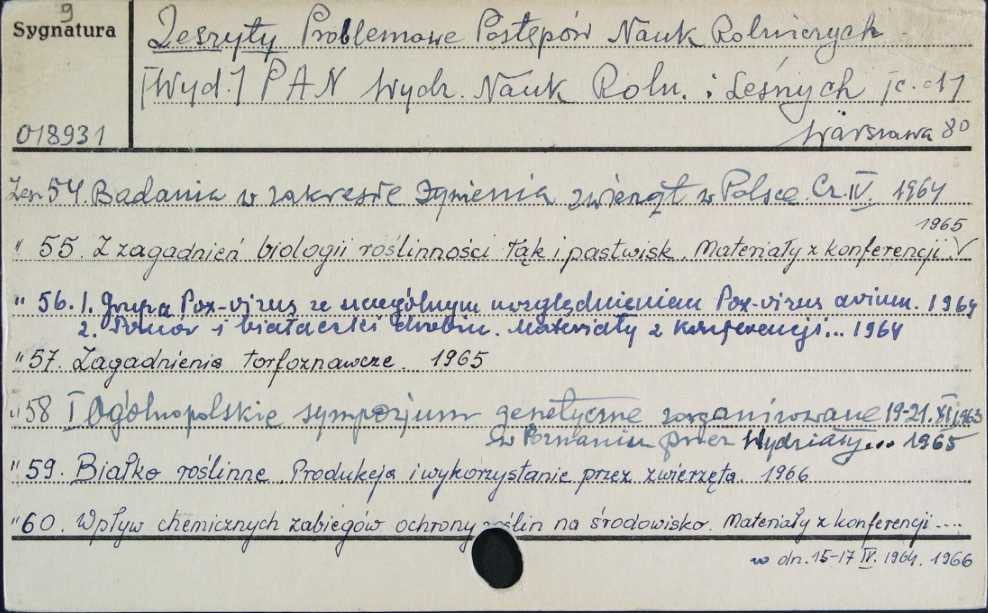 9
Sygnatura
Zeszyty Problemowe Postępów Nauk Rolniczych
[Wyd.] PAN Wydz. Nauk Roln. i Leśnych [c. d]
018931
Warszawa 80
Zesz. 54. Badania w zakresie żywienia zwierząt w Polsce. Cz. IV. 1964
1965
" 55. Z zagadnień biologii roślinności łąk i pastwisk. Materiały z konferencji.
" 56. 1. Grupa Pox-virus ze szczególnym uwzględnieniem Pox-virus avium. 1964
2. Pomór i białaczki drobiu. Materiały z konferencji... 1964
" 57. Zagadnienia torfoznawcze. 1965
" 58 I Ogólnopolskie sympozjum genetyczne zorganizowane 19-21.XI.1963
w Poznaniu przez Wydziały... 1965
" 59. Białko roślinne. Produkcja i wykorzystanie przez zwierzęta. 1966
" 60. Wpływ chemicznych zabiegów ochrony roślin na środowisko. Materiały z konferencji....
w dn. 15-17 IV. 1964. 1966